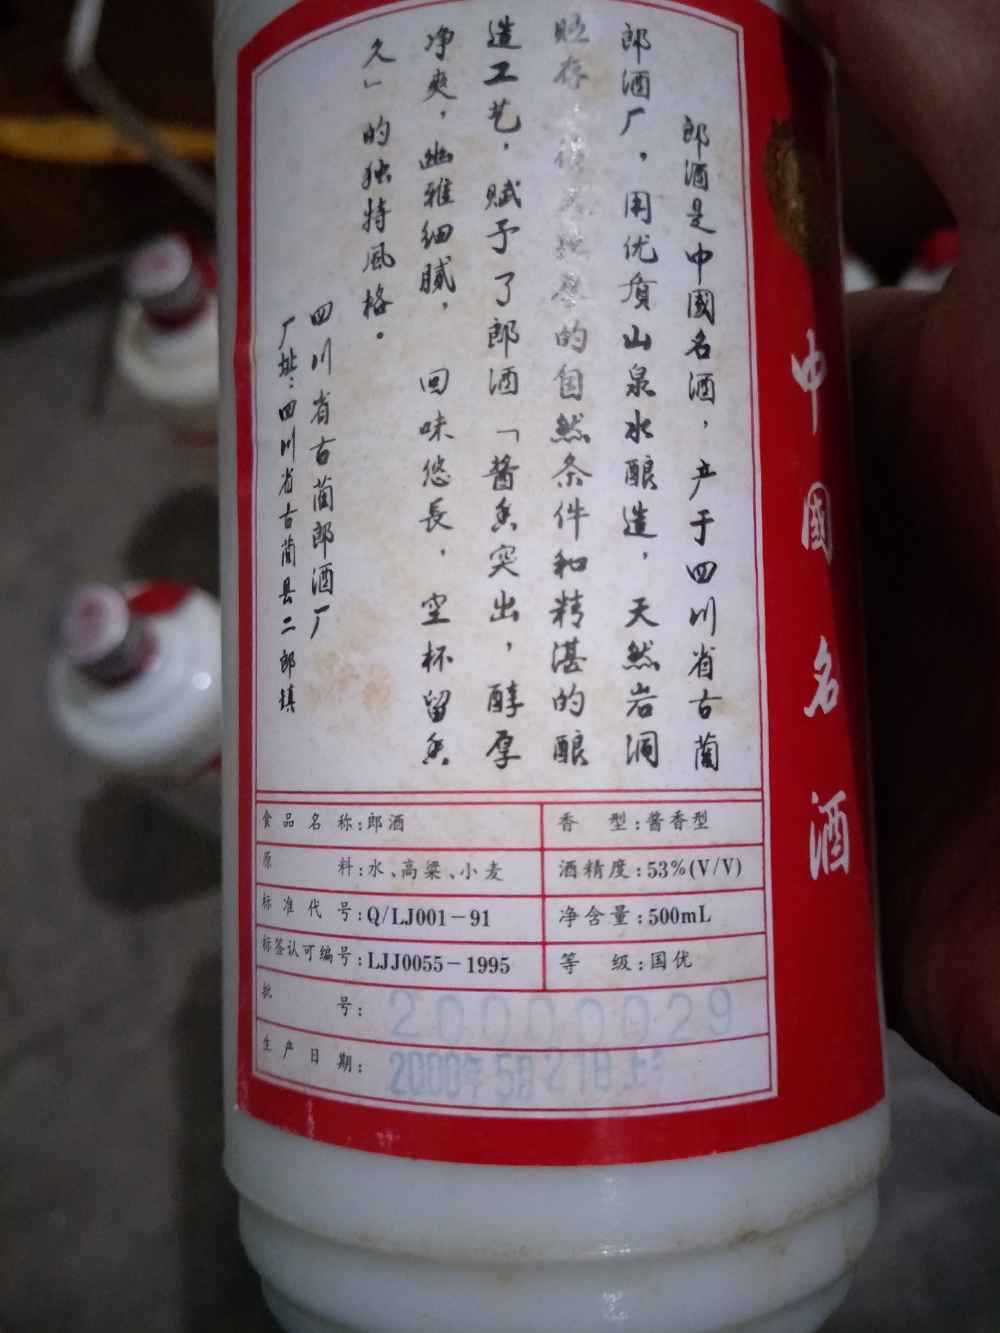 郎酒是中國名酒，产于四川省古蔺
郎酒厂，用优质山泉水酿造，天然岩洞
贮存，得天独厚的自然条件和精湛的酿
造工艺，赋予了郎酒「酱香突出，醇厚
净爽，幽雅细腻，回味悠長，空杯留香
久」的独特風格。
四川省古蔺郎酒厂
厂址：四川省古蔺县二郎镇
中國名酒
食品名称：郎酒
香型：酱香型
原料：水、高粱、小麦
酒精度：53%(V/V)
标准代号：Q/LJ001-91
净含量：500mL
标签认可编号：LJJ0055-1995
等级：国优
批号：20000029
生产日期：2000年5月21日